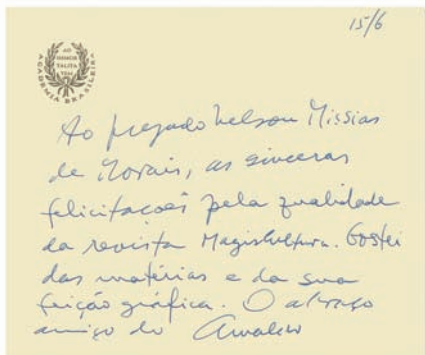 15/6
AD
IMMOR
TALITA
TEM
ACADEMIA BRASILEIRA
Ao prezado Nelson Missias
de Morais, as sinceras
felicitações pela qualidade
da revista MagisCultura. Gostei
das matérias e da sua
feição gráfica. O abraço
amigo do Arnaldo